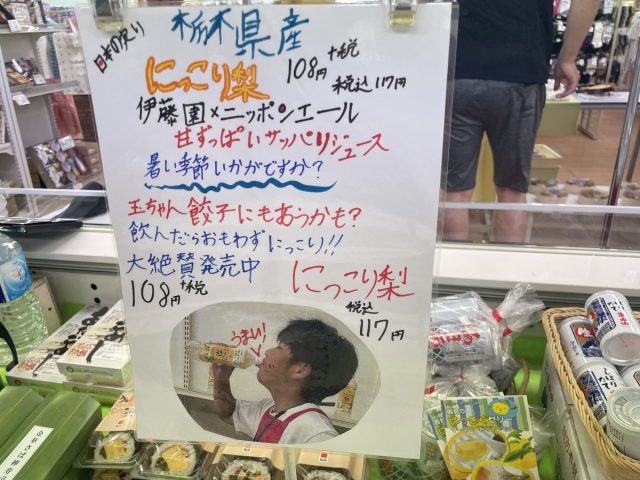 日本の次い
栃木県産
にっこり梨
108円+税
税込117円
伊藤園×ニッポンエール
甘ずっぱいサッパリジュース
暑い季節いかがですか?
玉ちゃん餃子にもあうかも?
飲んだらおもわずにっこり!!
大絶賛発売中
108円+税
にっこり梨
税込117円
うまい!